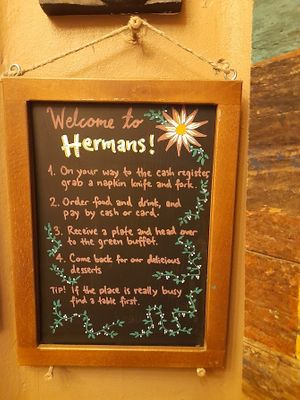 Welcome to
Hermans!
1. On your way to the cash register
grab a napkin knife and fork.
2. Order food and drink, and
pay by cash or card.
3. Receive a plate and head over
to the green buffet.
4. Come back for our delicious
desserts
TIP! If the place is really busy
find a table first.